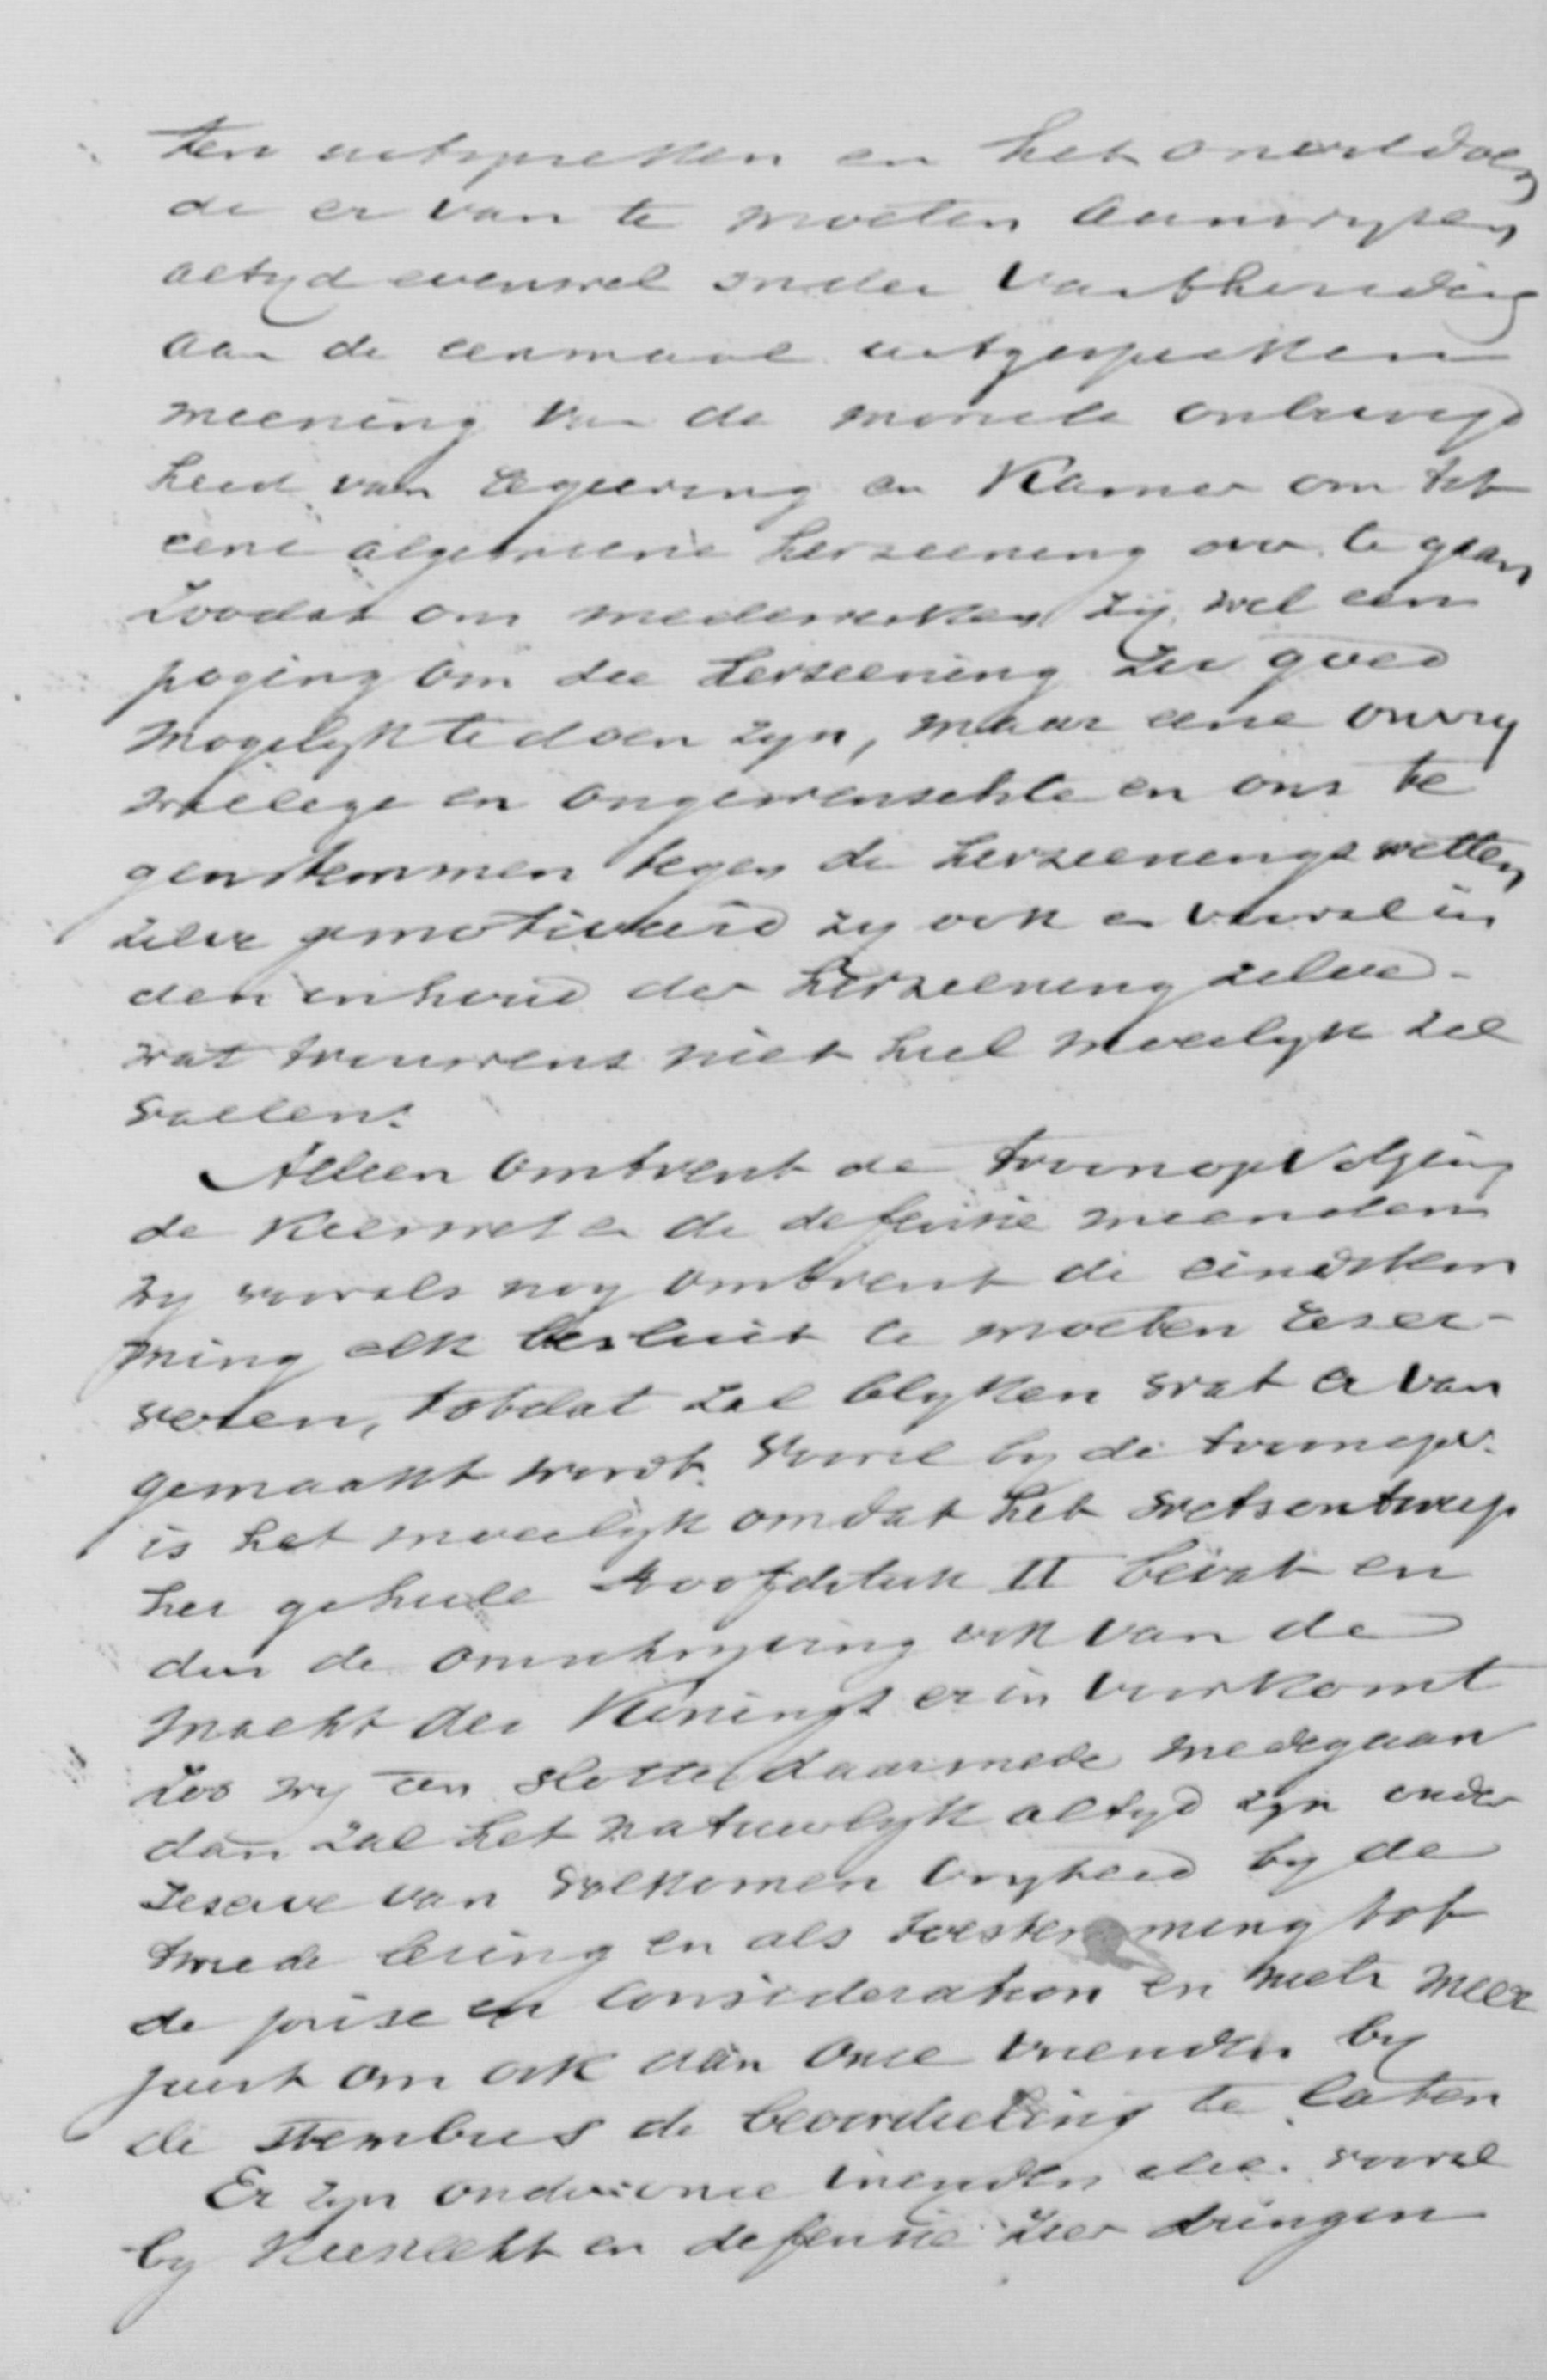 ten uitspreken en het onvoldoen
de er van te moeten aanwyzen
altyd evenwel onder vasthouding
aan de eenmaal uitgesproken
meening van de moreele onbevoegd
heid van regeering en Kamer om tot
eene algemeene herziening over te gaan
Zoodat ons medewerken zy wel een
poging om die herziening zoo goed
mogelyk te doen zyn, maar eene onvry
willige en ongewenschte en ons te
genstemmen tegen de herzieningswetten
zelve gemotiveerd zy ook en vooral in
den inhoud der herziening zelve -
wat trouwens niet heel moeilyk zal
vallen.
Alleen omtrent de troonopvolging
de Kieswet en de defensie meenden
wy voorals nog omtrent de eindstem
ming elk besluit te moeten reser-
veren, totdat zal blyken wat er van
gemaakt wordt. Vooral by de troonopv.
is het moeilyk omdat het wetsontwerp
het geheele Hoofdstuk II bevat en
dus de omschryving ook van de
macht des Konings er in voorkomt
Zoo wy ten slotte daarmede medegaan
dan zal het natuurlyk altyd zyn onder
reserve van volkomen vryheid by de
tweede lezing en als toestemming tot
de prise en consideration en niets meer
juist om ook aan onze vrienden by
de stembus de beoordeeling te laten
Er zyn onder onze vrienden die vooral
by Kiesrecht en defensie zeer dringen